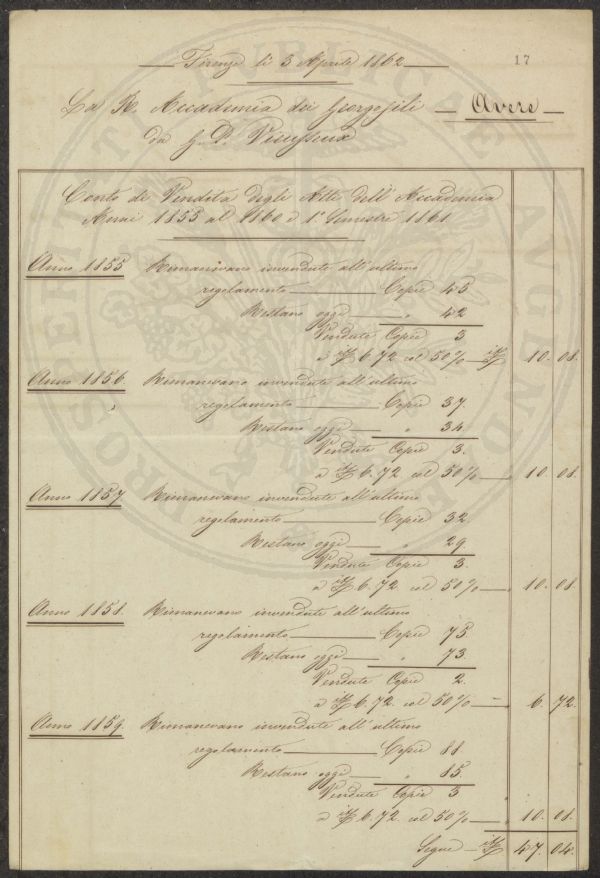 Firenze li 3 Aprile 1862
17
La R. Accademia dei Georgofili — Avere —
da G. P. Vieusseux
Conto di Vendita degli Atti dell' Accademia
Anni 1855 al 1860 e 1º Semestre 1861
Anno 1855 Rimanevano invendute all'ultimo
regolamento — Copie 45
Restano oggi — " 42
Vendute Copie 3
a 6.72 col 50% — 10. 08.
Anno 1856. Rimanevano invendute all'ultimo
regolamento — Copie 37.
Restano oggi — " 34
Vendute Copie 3.
a 6.72 col 50% — 10. 08.
Anno 1857. Rimanevano invendute all'ultimo
regolamento — Copie 32
Restano oggi — " 29
Vendute Copie 3.
a 6.72 col 50% — 10. 08.
Anno 1858. Rimanevano invendute all'ultimo
regolamento — Copie 75
Restano oggi — " 73
Vendute Copie 2.
a 6.72. col 50% — 6. 72.
Anno 1859. Rimanevano invendute all'ultimo
regolamento — Copie 88
Restano oggi — " 85.
Vendute Copie 3
a 6.72. col 50% — 10. 08.
Segue — 47. 04.
PROSPERITATI PUBLICAE AUGENDAE